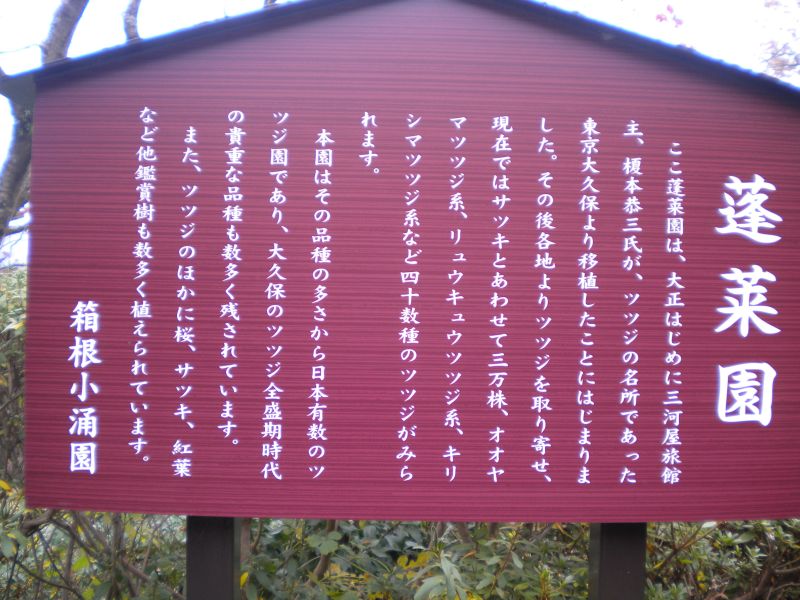 蓬莱園
ここ蓬莱園は、大正はじめに三河屋旅館
主、榎本恭三氏が、ツツジの名所であった
東京大久保より移植したことにはじまりま
した。その後各地よりツツジを取り寄せ、
現在ではサツキとあわせて三万株、オオヤ
マツツジ系、リュウキュウツツジ系、キリ
シマツツジ系など四十数種のツツジがみら
れます。
本園はその品種の多さから日本有数のツ
ツジ園であり、大久保のツツジ全盛期時代
の貴重な品種も数多く残されています。
また、ツツジのほかに桜、サツキ、紅葉
など他鑑賞樹も数多く植えられています。
箱根小涌園